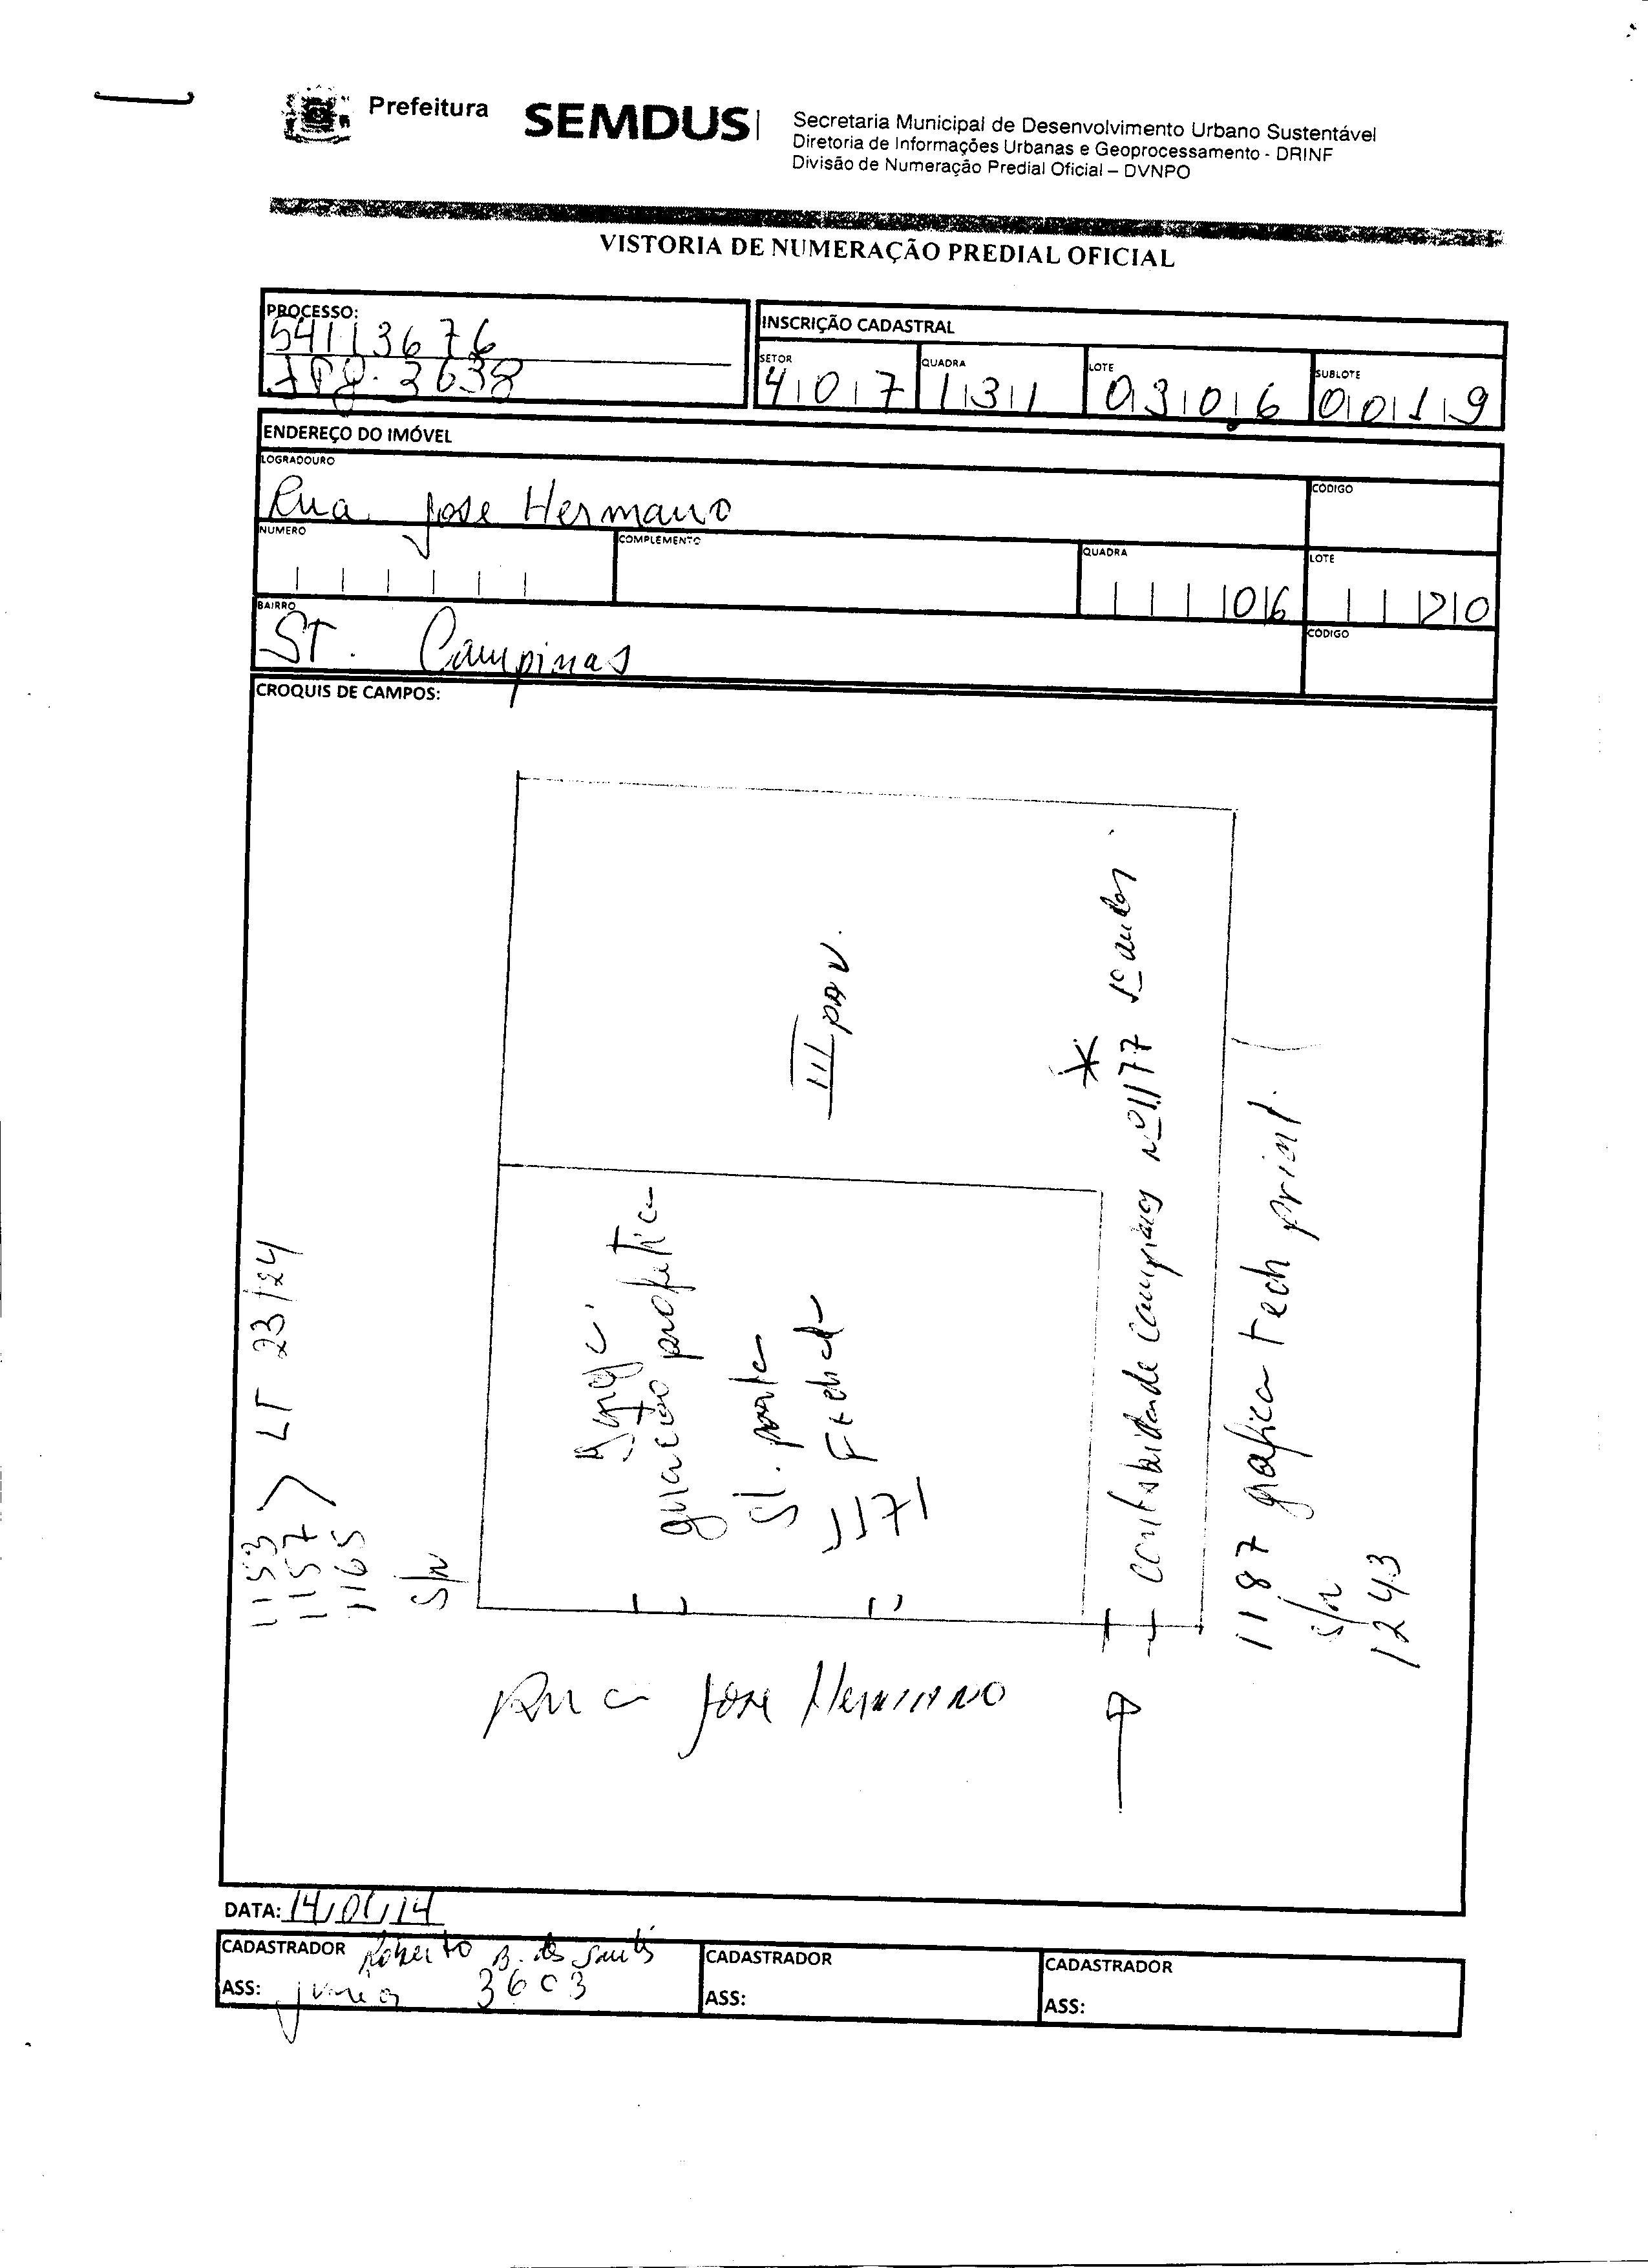 Prefeitura
SEMDUS
Secretaria Municipal de Desenvolvimento Urbano Sustentável
Diretoria de Informações Urbanas e Geoprocessamento - DRINF
Divisão de Numeração Predial Oficial – DVNPO
VISTORIA DE NUMERAÇÃO PREDIAL OFICIAL
PROCESSO:
54113676
3638
INSCRIÇÃO CADASTRAL
SETOR
407
QUADRA
131
LOTE
0306
SUBLOTE
0019
ENDEREÇO DO IMÓVEL
LOGRADOURO
Rua Jose Hermano
CÓDIGO
NUMERO
COMPLEMENTO
QUADRA
06
LOTE
20
BAIRRO
ST. Campinas
CÓDIGO
CROQUIS DE CAMPOS:
1153
1157 > LT 23/24
1165
S/N
III PAV.
geração profetica
Sl. porta
Fechad
1171
contabilidade campinas Nº 1177 1º andar
1187 grafica tech print.
s/n
1243
Rua Jose Hermano
DATA: 14/01/14
CADASTRADOR Roberto B. dos Santos
ASS: junior 3603
CADASTRADOR
ASS:
CADASTRADOR
ASS: